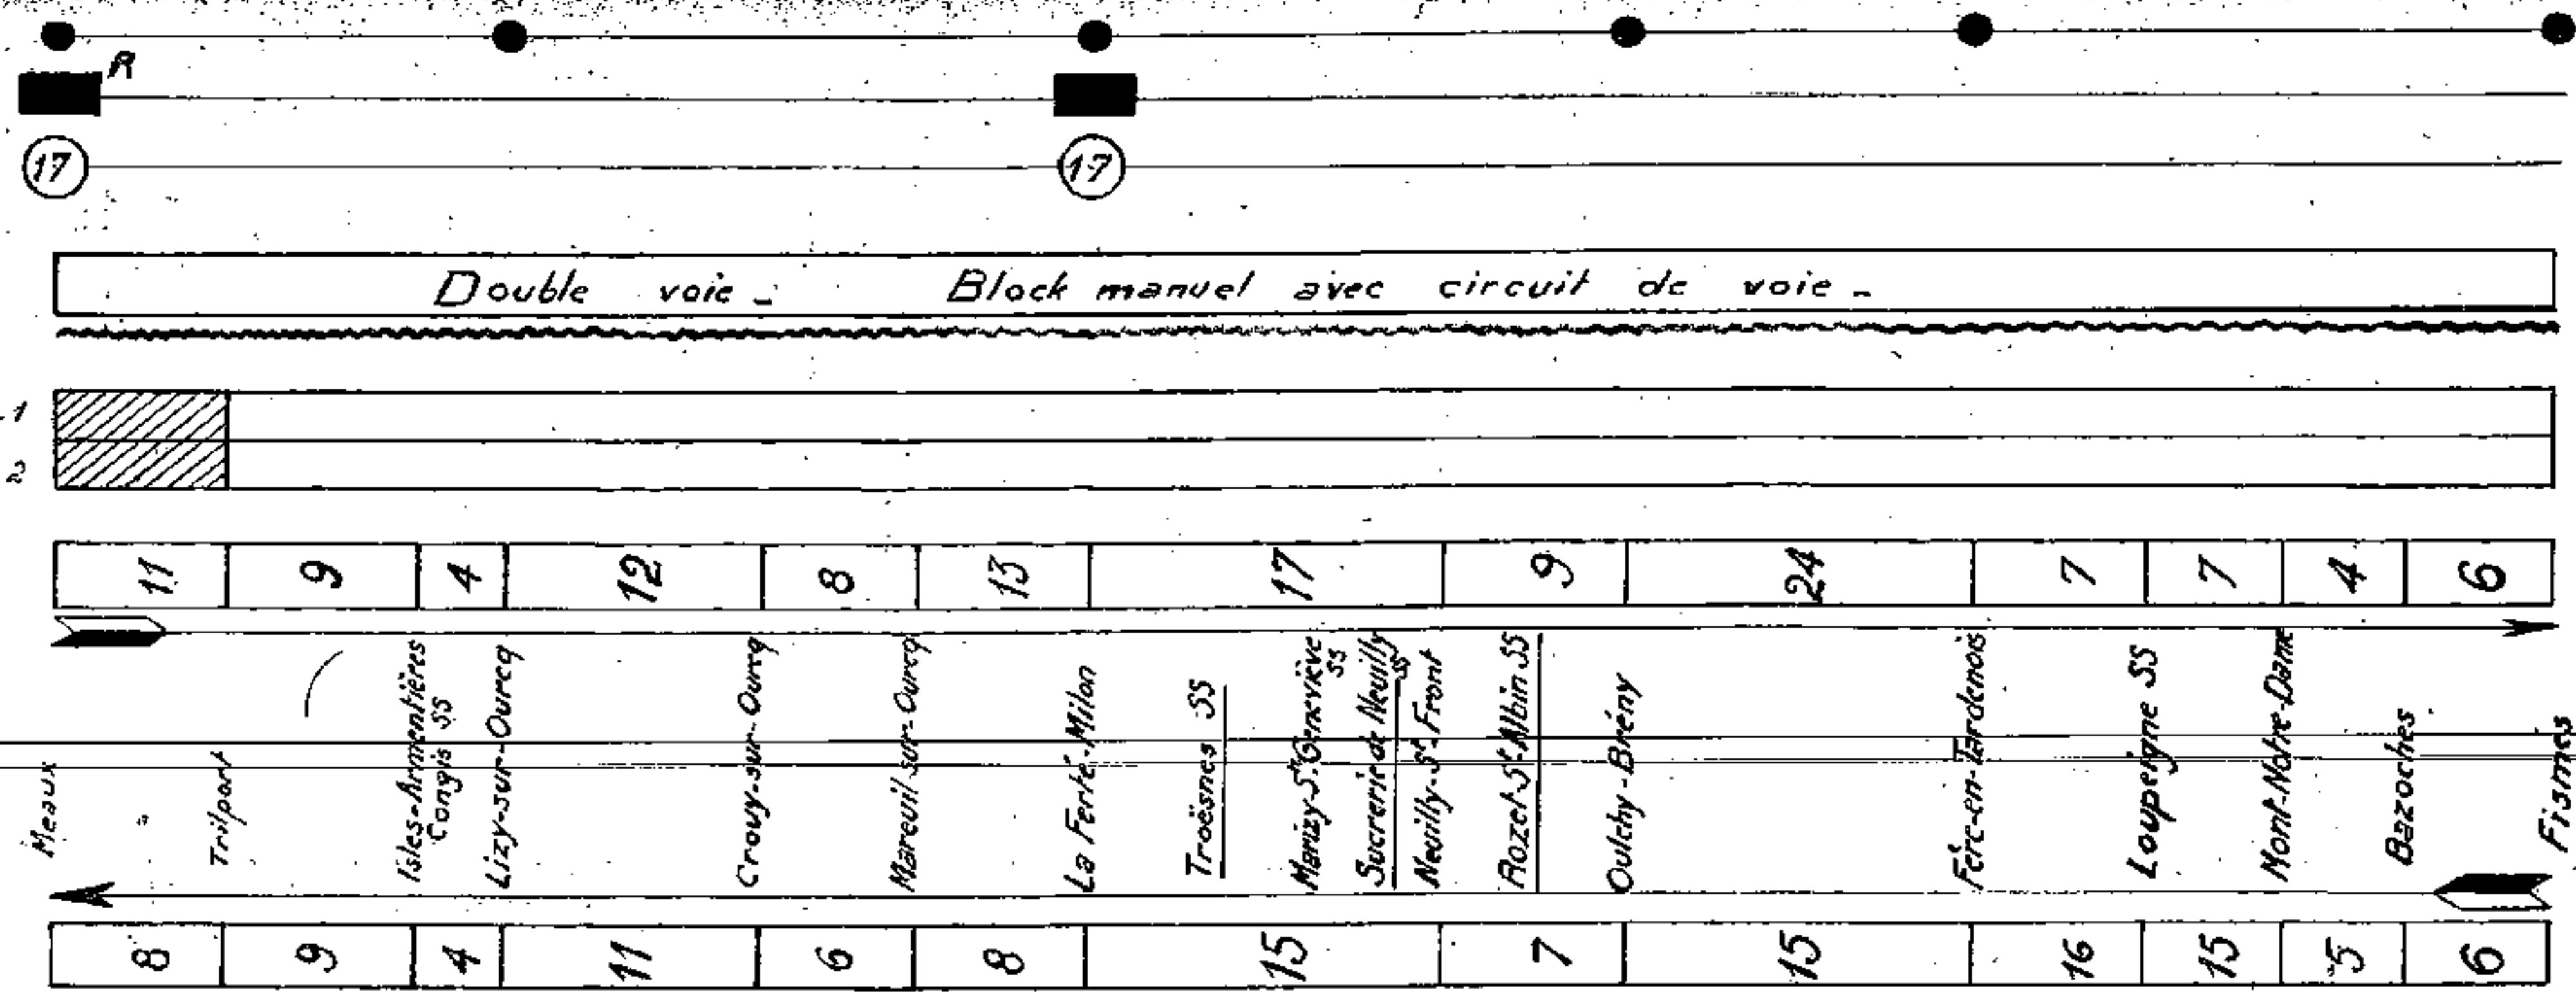 R
17 17
Double voie - Block manuel avec circuit de voie -
1
2
11 9 4 12 8 13 17 9 24 7 7 4 6
Meaux
Trilport
Isles-Armentières
Congis SS
Lizy-sur-Ourcq
Crouy-sur-Ourcq
Mareuil-sur-Ourcq
La Ferté-Milon
Troësnes SS
Marizy-Ste Geneviève
SS
Sucrerie de Neuilly
SS
Neuilly-St-Front
Rozet-St-Albin SS
Oulchy-Brény
Fère-en-Tardenois
Loupeigne SS
Mont-Notre-Dame
Bazoches
Fismes
8 9 4 11 6 8 15 7 15 16 15 5 6